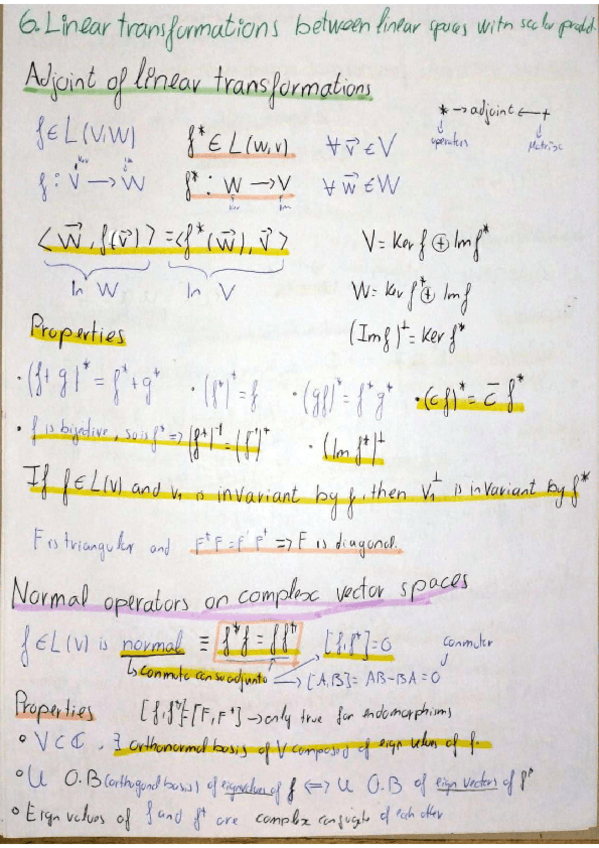 6. Linear transformations between linear spaces with scalar product.
Adjoint of linear transformations
* → adjoint ← +
operators Matrix
f ∈ L(V,W) f* ∈ L(W,V) ∀ v⃗ ∈ V
f: V → W f*: W → V ∀ w⃗ ∈ W
Ker Im Ker Im
⟨w⃗, f(v⃗)⟩ = ⟨f*(w⃗), v⃗⟩ V = Ker f ⊕ Im f*
In W In V W = Ker f* ⊕ Im f
(Im f)⊥ = Ker f*
Properties
· (f+g)* = f*+g* · (f*)* = f · (gf)* = f*g* · (cf)* = c̄ f*
· f is bijective, so is f* => (f*)⁻¹ = (f⁻¹)* · (Im f*)⊥
If f ∈ L(V) and V₁ is invariant by f, then V₁⊥ is invariant by f*
F is triangular and F⁺F = F F⁺ => F is diagonal.
Normal operators on complex vector spaces
f ∈ L(V) is normal ≡ f*f = ff* [f,f*]=0 conmutar
↳ conmuta con su adjunto → [A,B] = AB-BA = 0
Properties [f,f*]=[F,F⁺] → only true for endomorphisms
° V ⊂ ℂ, ∃ orthonormal basis of V composed of eign of f.
° U O.B (orthogonal basis) of f <=> U O.B of eign vectors of f*
° Eign values of f and f* are complex conjugate of each other